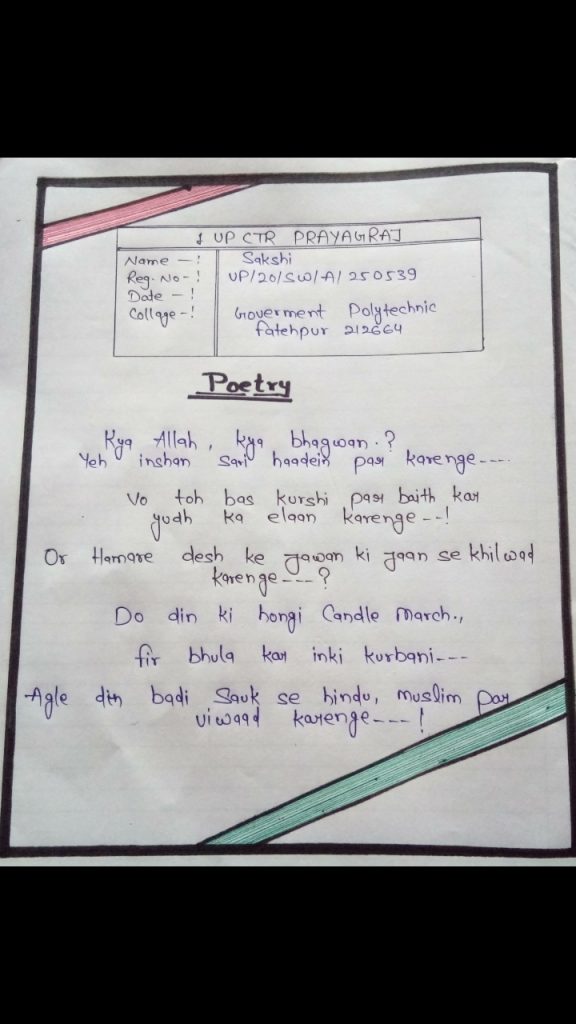 1 UP CTR PRAYAGRAJ
Name -! Sakshi
Reg. No -! UP/20/SW/A/250539
Date -!
Collage -! Goverment Polytechnic
fatehpur 212664
Poetry
Kya Allah, kya bhagwan.?
Yeh inshan sari haadein par karenge----
Vo toh bas kurshi par baith kar
yudh ka elaan karenge--!
Or Hamare desh ke jawan ki jaan se khilwad
karenge---?
Do din ki hongi Candle March.,
fir bhula kar inki kurbani---
Agle din badi Sauk se hindu, muslim par
viwaad karenge---!